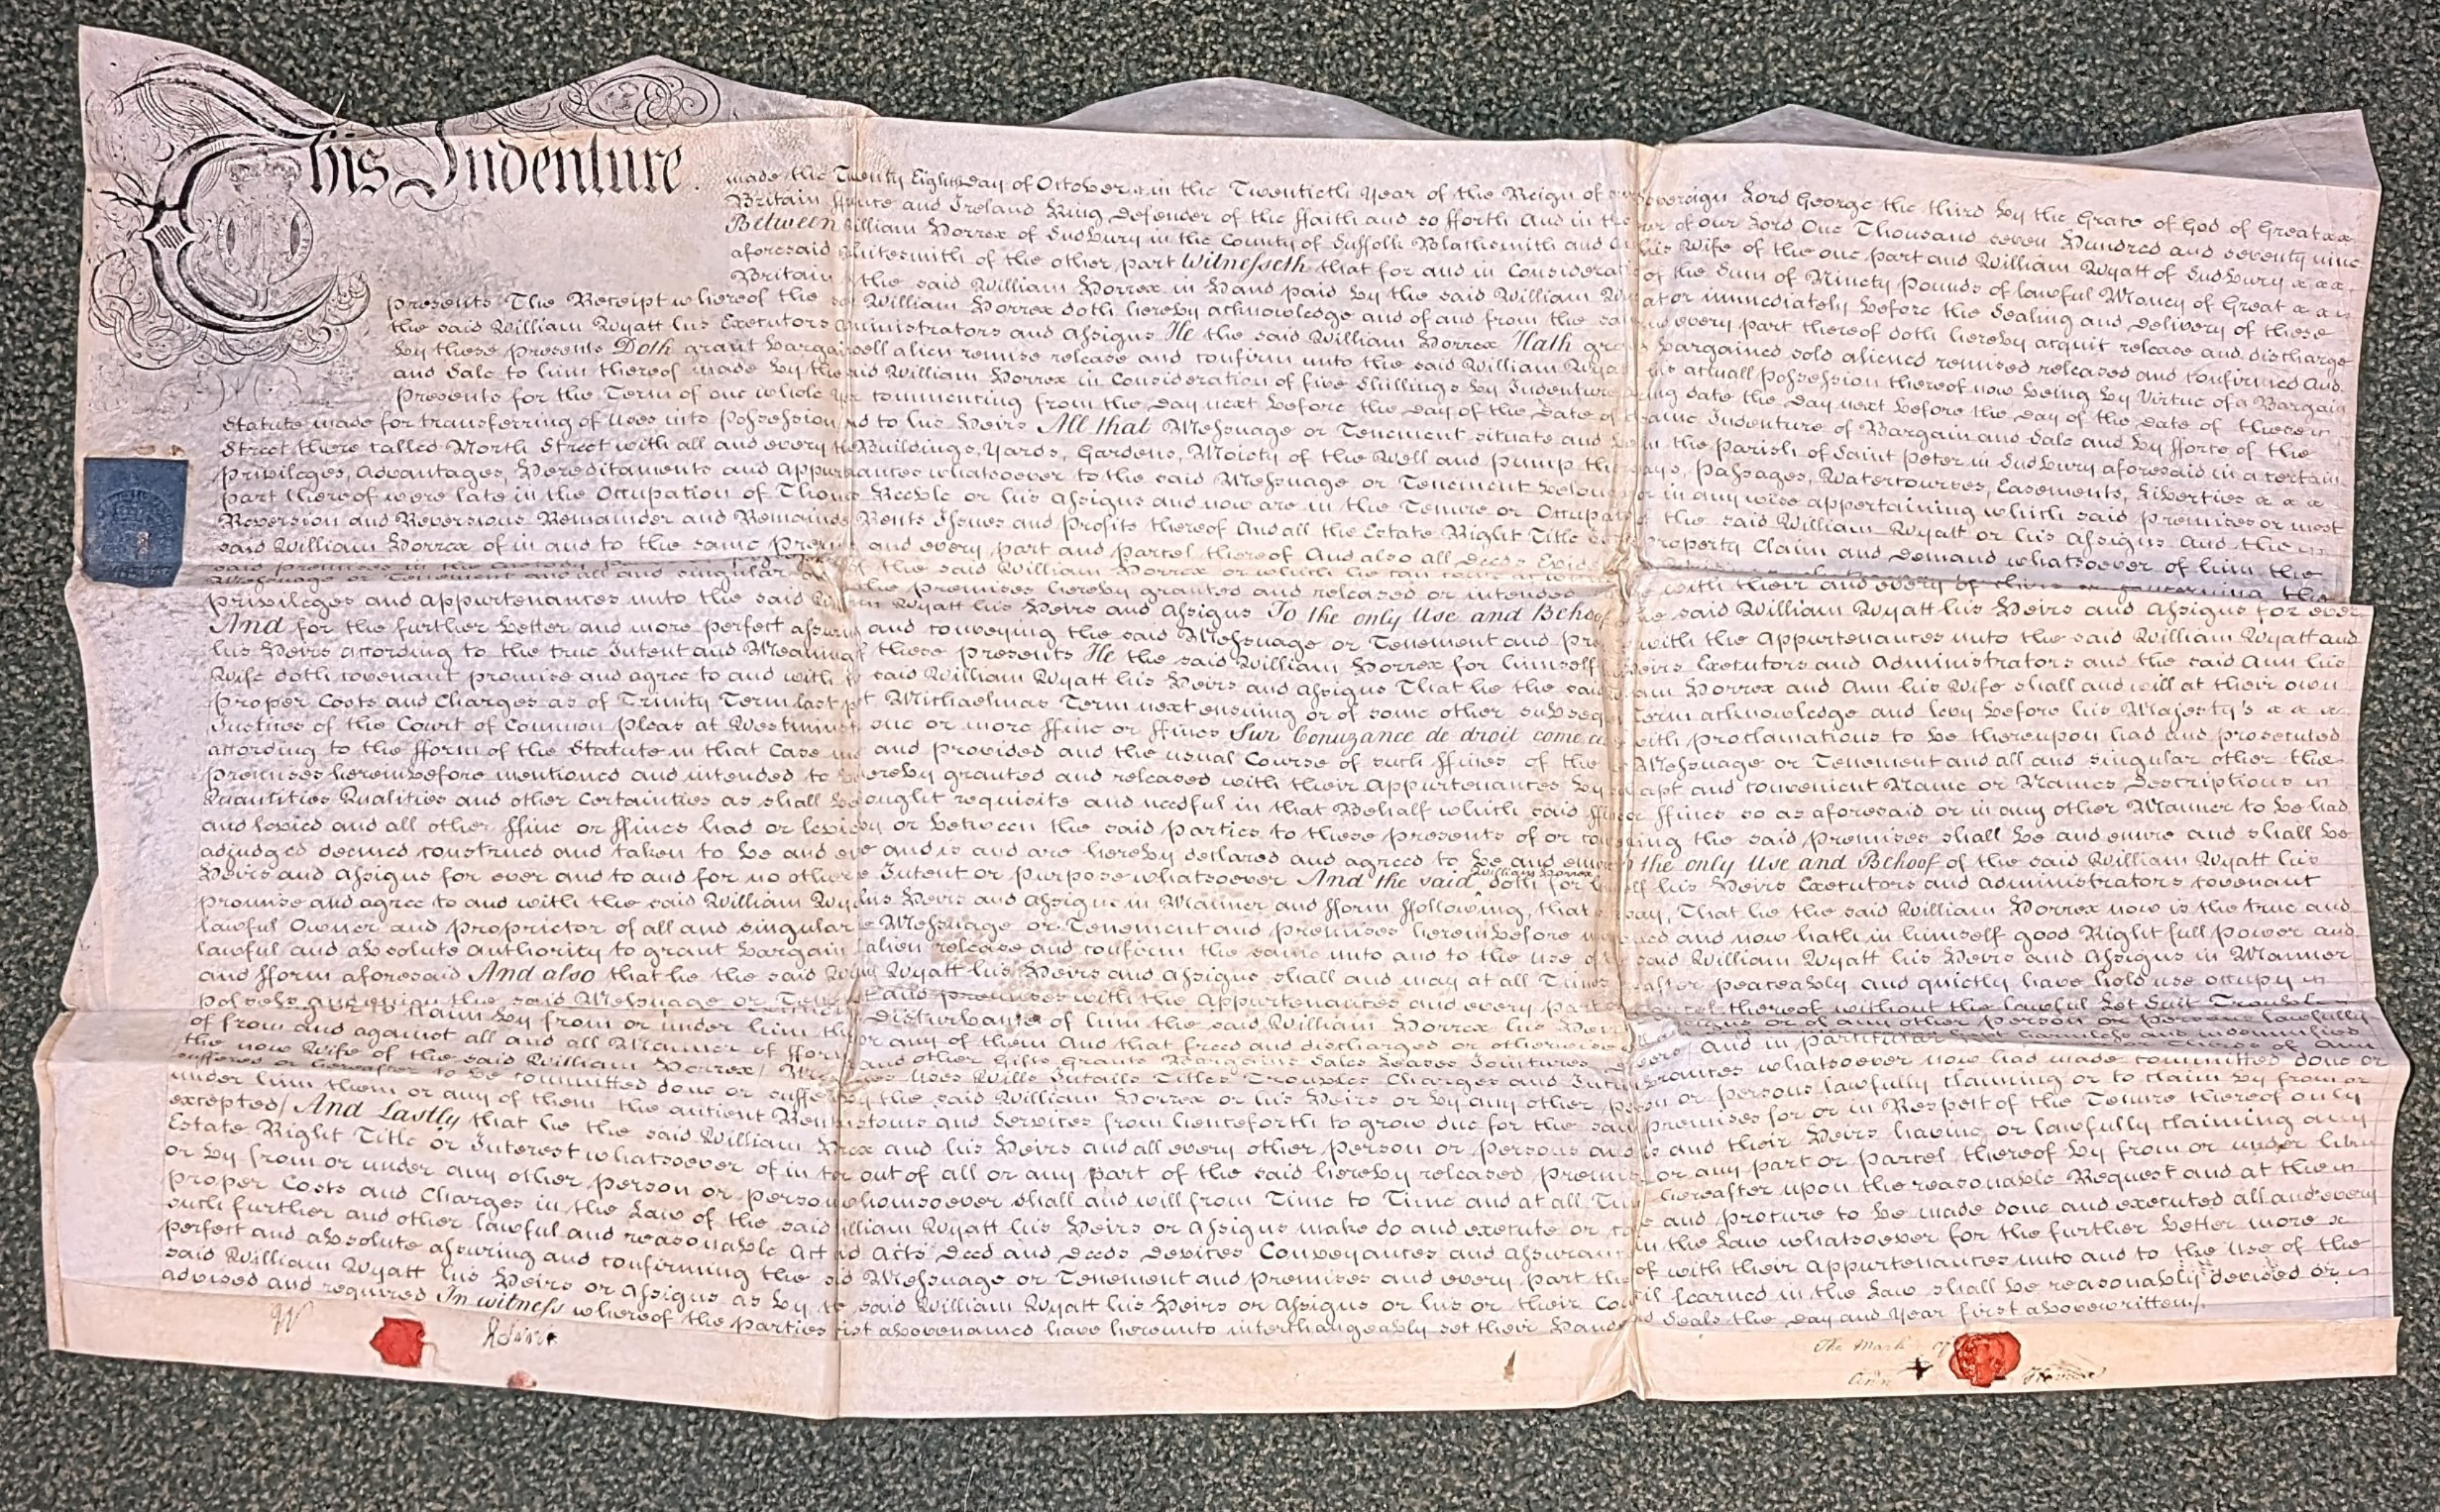 This Indenture made the Twenty Eighth Day of October in the Twentieth Year of the Reign of our Sovereign Lord George the third by the Grace of God of Great
Britain ffrance and Ireland King, Defender of the ffaith and so fforth And in the Year of our Lord One Thousand seven Hundred and seventy nine
Between William Horrex of Sudbury in the County of Suffolk Blacksmith and Ann his Wife of the one part and William Wyatt of Sudbury
aforesaid Whitesmith of the other part Witnesseth that for and in Consideration of the Sum of Ninety Pounds of lawful Money of Great
Britain to the said William Horrex in Hand paid by the said William Wyatt at or immediately before the Sealing and Delivery of these
presents The Receipt whereof the said William Horrex doth hereby acknowledge and of and from the same and every part thereof doth hereby acquit release and discharge
the said William Wyatt his Executors Administrators and Assigns He the said William Horrex Hath granted bargained sold aliened remised released and confirmed And
by these presents Doth grant bargain sell alien remise release and confirm unto the said William Wyatt actuall possession thereof now being by Virtue of a Bargain
and Sale to him thereof made by the said William Horrex in Consideration of five Shillings by Indenture bearing date the Day next before the Day of the Date of these
presents for the Term of one whole Year commencing from the Day next before the Day of the Date of same Indenture of Bargain and Sale and by fforce of the
Statute made for transferring of Uses into Possession and to his Heirs All that Messuage or Tenement situate and in the Parish of Saint Peter in Sudbury aforesaid in a certain
Street there called North Street with all and every the Buildings, Yards, Gardens, Moiety of the Well and Pump Ways, Passages, Watercourses, Easements, Liberties
privileges, Advantages, Hereditaments and Appurtenances whatsoever to the said Messuage or Tenement belonging or in any wise appertaining which said premises or most
part thereof were late in the Occupation of Thomas or his Assigns and now are in the Tenure or Occupation of the said William Wyatt or his Assigns And the
Reversion and Reversions Remainder and Remainders Rents Issues and profits thereof And all the Estate Right Title Property Claim and Demand whatsoever of him the
said William Horrex of in and to the same premises and every part and parcel thereof And also all Deeds
said premises in the Custody of the said William Horrex or which he can
Messuage or Tenement and all and singular the premises hereby granted and released or intended with their and every
privileges and Appurtenances unto the said William Wyatt his Heirs and Assigns To the only Use and Behoof of the said William Wyatt his Heirs and Assigns for ever
And for the further better and more perfect assuring and conveying the said Messuage or Tenement and premises with the Appurtenances unto the said William Wyatt and
his Heirs according to the true Intent and Meaning of these presents He the said William Horrex for himself Heirs Executors and Administrators and the said Ann his
Wife doth covenant promise and agree to and with the said William Wyatt his Heirs and Assigns That he the said William Horrex and Ann his Wife shall and will at their own
proper Costs and Charges as of Trinity Term last past Michaelmas Term next ensuing or of some other subsequent Term acknowledge and levy before his Majesty's
Justices of the Court of Common Pleas at Westminster one or more ffine or ffines Sur Conuzance de droit come ceo with proclamations to be thereupon had and prosecuted
according to the fform of the Statute in that Case made and provided and the usual Course of such ffines of the Messuage or Tenement and all and singular other the
premises hereinbefore mentioned and intended to be hereby granted and released with their Appurtenances by apt and convenient Name or Names Descriptions
Quantities Qualities and other Certainties as shall be thought requisite and needful in that Behalf which said ffine or ffines so as aforesaid or in any other Manner to be had
and levied and all other ffine or ffines had or levied by or between the said parties to these presents of or concerning the said premises shall be and enure and shall be
adjudged deemed construed and taken to be and enure and is and are hereby declared and agreed to be and enure To the only Use and Behoof of the said William Wyatt his
Heirs and Assigns for ever and to and for no other Use Intent or purpose whatsoever And the said William Horrex doth for himself his Heirs Executors and Administrators covenant
promise and agree to and with the said William Wyatt his Heirs and Assigns in Manner and fform ffollowing, that is to say, That he the said William Horrex now is the true and
lawful Owner and Proprietor of all and singular the Messuage or Tenement and premises hereinbefore mentioned and now hath in himself good Right full power and
lawful and absolute Authority to grant bargain sell alien release and confirm the same unto and to the Use of the said William Wyatt his Heirs and Assigns in Manner
and fform aforesaid And also that he the said William Wyatt his Heirs and Assigns shall and may at all Times hereafter peaceably and quietly have hold use occupy
possess and enjoy the said Messuage or Tenement and premises with the Appurtenances and every part and parcel thereof without the lawful Let Suit Trouble
Disturbance of him the said William Horrex his Heirs or Assigns or of any other person or persons lawfully
claim by from or under him them or any of them And that freed and discharged or otherwise saved harmless and indemnified
of from and against all and all Manner of fformer and other Gifts Grants Bargains Sales Leases Jointures Dowers and in particular of Ann
the now Wife of the said William Horrex Uses Wills Intails Titles Troubles Charges and Incumbrances whatsoever now had made committed done or
suffered or hereafter to be committed done or suffered by the said William Horrex or his Heirs or by any other person or persons lawfully claiming or to claim by from or
under him them or any of them the antient Rents Customs and Services from henceforth to grow due for the said premises for or in Respect of the Tenure thereof only
excepted And Lastly that he the said William Horrex and his Heirs and all every other person or persons and his and their Heirs having or lawfully claiming any
Estate Right Title or Interest whatsoever of in to or out of all or any part of the said hereby released premises or any part or parcel thereof by from or under him
or by from or under any other person or persons whomsoever shall and will from Time to Time and at all Times hereafter upon the reasonable Request and at the
proper Costs and Charges in the Law of the said William Wyatt his Heirs or Assigns make do and execute or cause and procure to be made done and executed all and every
such further and other lawful and reasonable Act and Acts Deed and Deeds Devices Conveyances and Assurances in the Law whatsoever for the further better more
perfect and absolute assuring and confirming the said Messuage or Tenement and premises and every part thereof with their Appurtenances unto and to the Use of the
said William Wyatt his Heirs or Assigns as by the said William Wyatt his Heirs or Assigns or his or their Council learned in the Law shall be reasonably devised or
advised and required In witness whereof the parties first abovenamed have hereunto interchangeably set their Hands and Seals the Day and Year first abovewritten
W
The Mark of
Ann